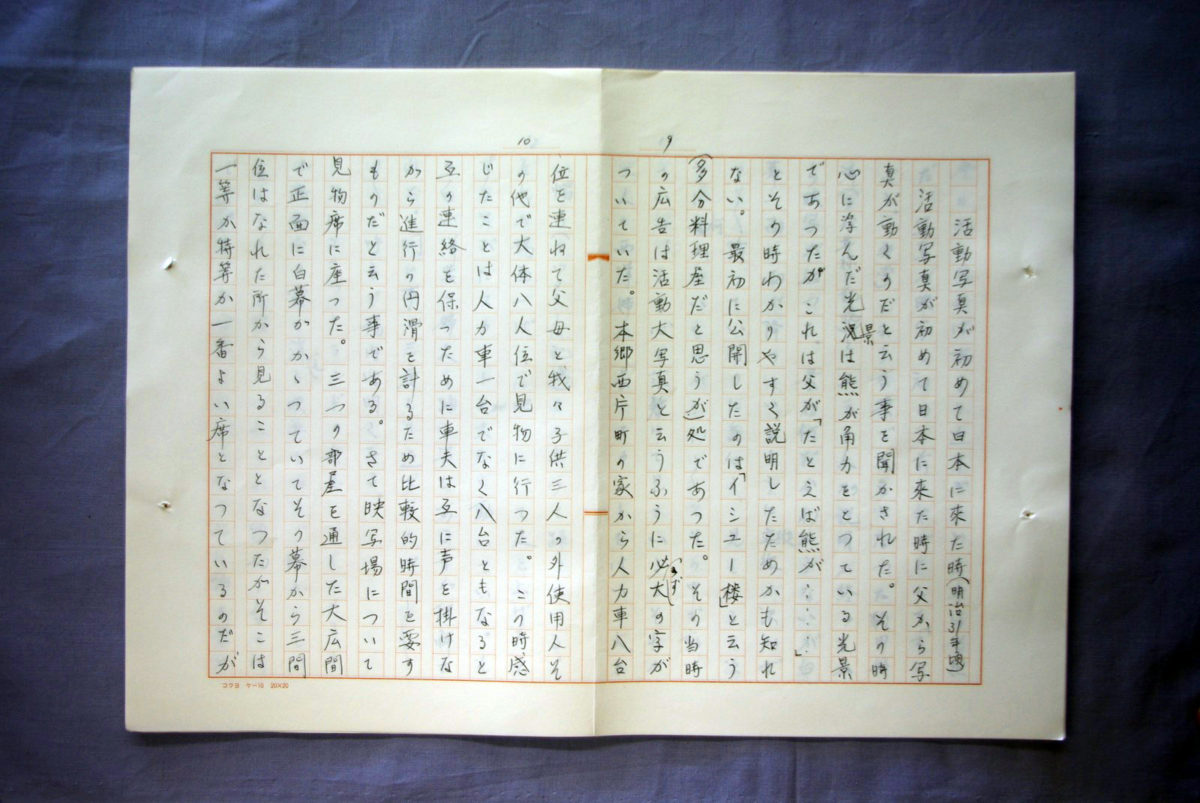 9
活動写真が初めて日本に来た時(明治31年頃)
活動写真が初めて日本に来た時に父から写
真が動くのだと云う事を聞かされた。その時
心に浮んだ光景は熊が角力をとつている光景
であつたがこれは父が「たとえば熊が……」
とその時わかりやすく説明したためかも知れ
ない。最初に公開したのは「イシユー楼」と云う
(多分料理屋だと思うが)処であつた。その当時
の広告は活動大写真と云うふうに必(〃ず〃)大の字が
ついていた。本郷西片町の家から人力車八台
10
位を連ねて父母と我々子供三人の外使用人そ
の他で大体八人位で見物に行つた。この時感
じたことは人力車一台でなく八台ともなると
互の連絡を保つために車夫は互に声を掛けな
から進行の円滑を計るため比較的時間を要す
ものだと云う事である。さて映写場について
見物席に座つた。三つの部屋を通した大広間
で正面に白幕がかゝつていてその幕から三間
位はなれた所から見ることとなつたがそこは
一等か特等か一番よい席となつているのだが
コクヨ ケー10 20×20